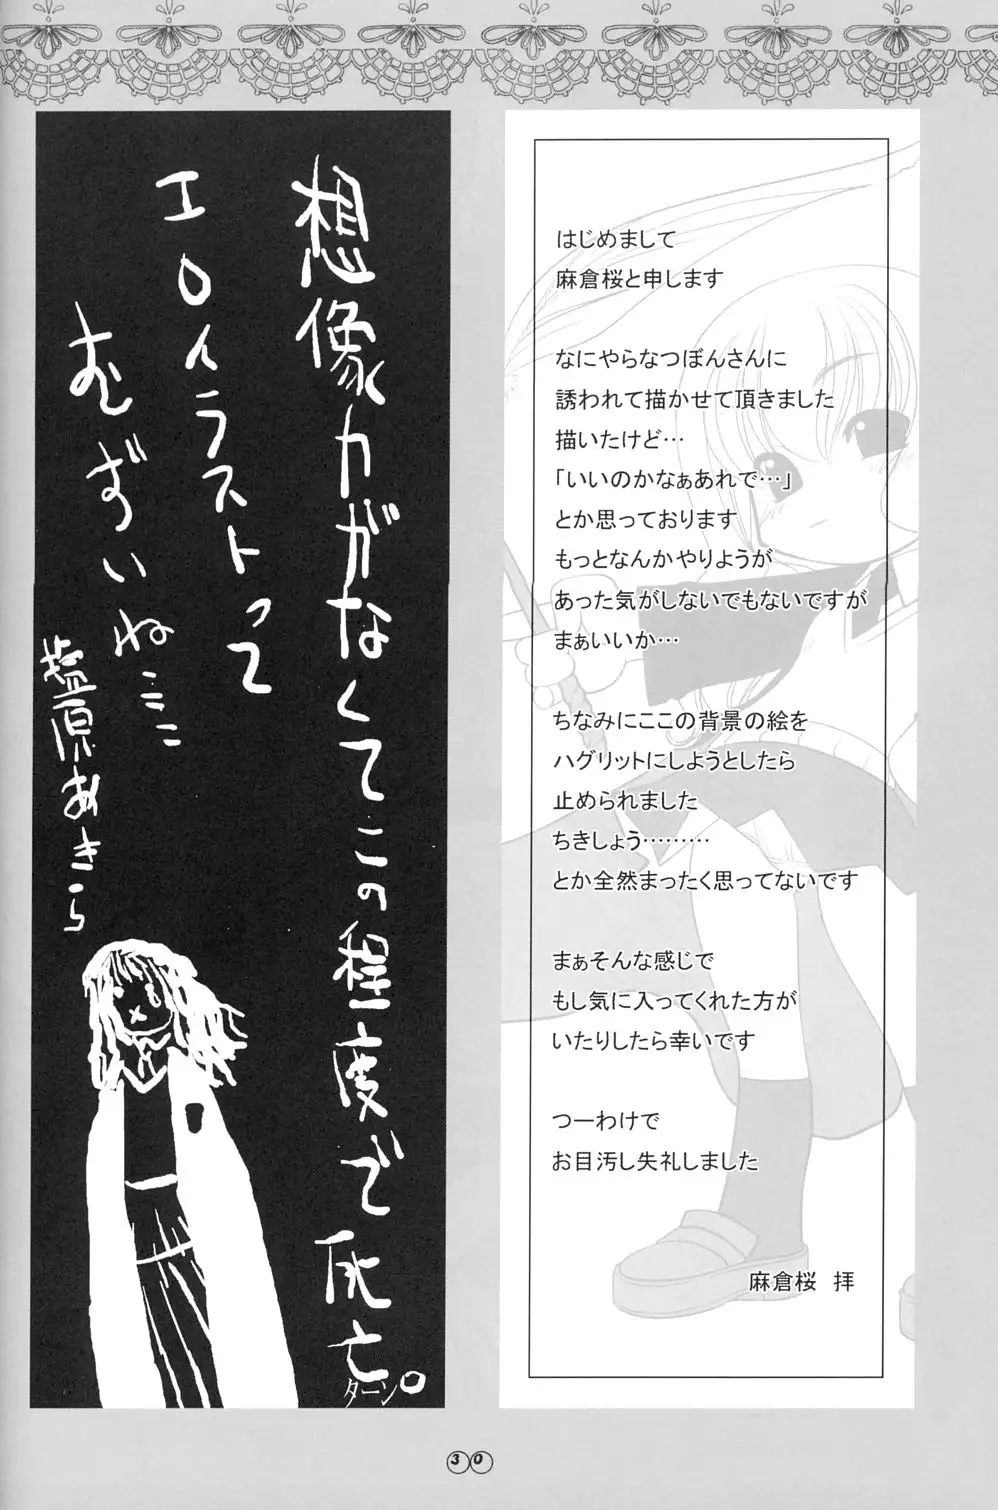 はじめまして
麻倉桜と申します
なにやらなつぼんさんに
誘われて描かせて頂きました
描いたけど…
「いいのかなぁあれで…」
とか思っております
もっとなんかやりようが
あった気がしないでもないですが
まぁいいか…
ちなみにここの背景の絵を
ハグリットにしようとしたら
止められました
ちきしょう………
とか全然まったく思ってないです
まぁそんな感じで
もし気に入ってくれた方が
いたりしたら幸いです
つーわけで
お目汚し失礼しました
麻倉桜　拝
想像力がなくてこの程度で死亡
ターン
エロイラストって
むずいね…
塩原あきら
30